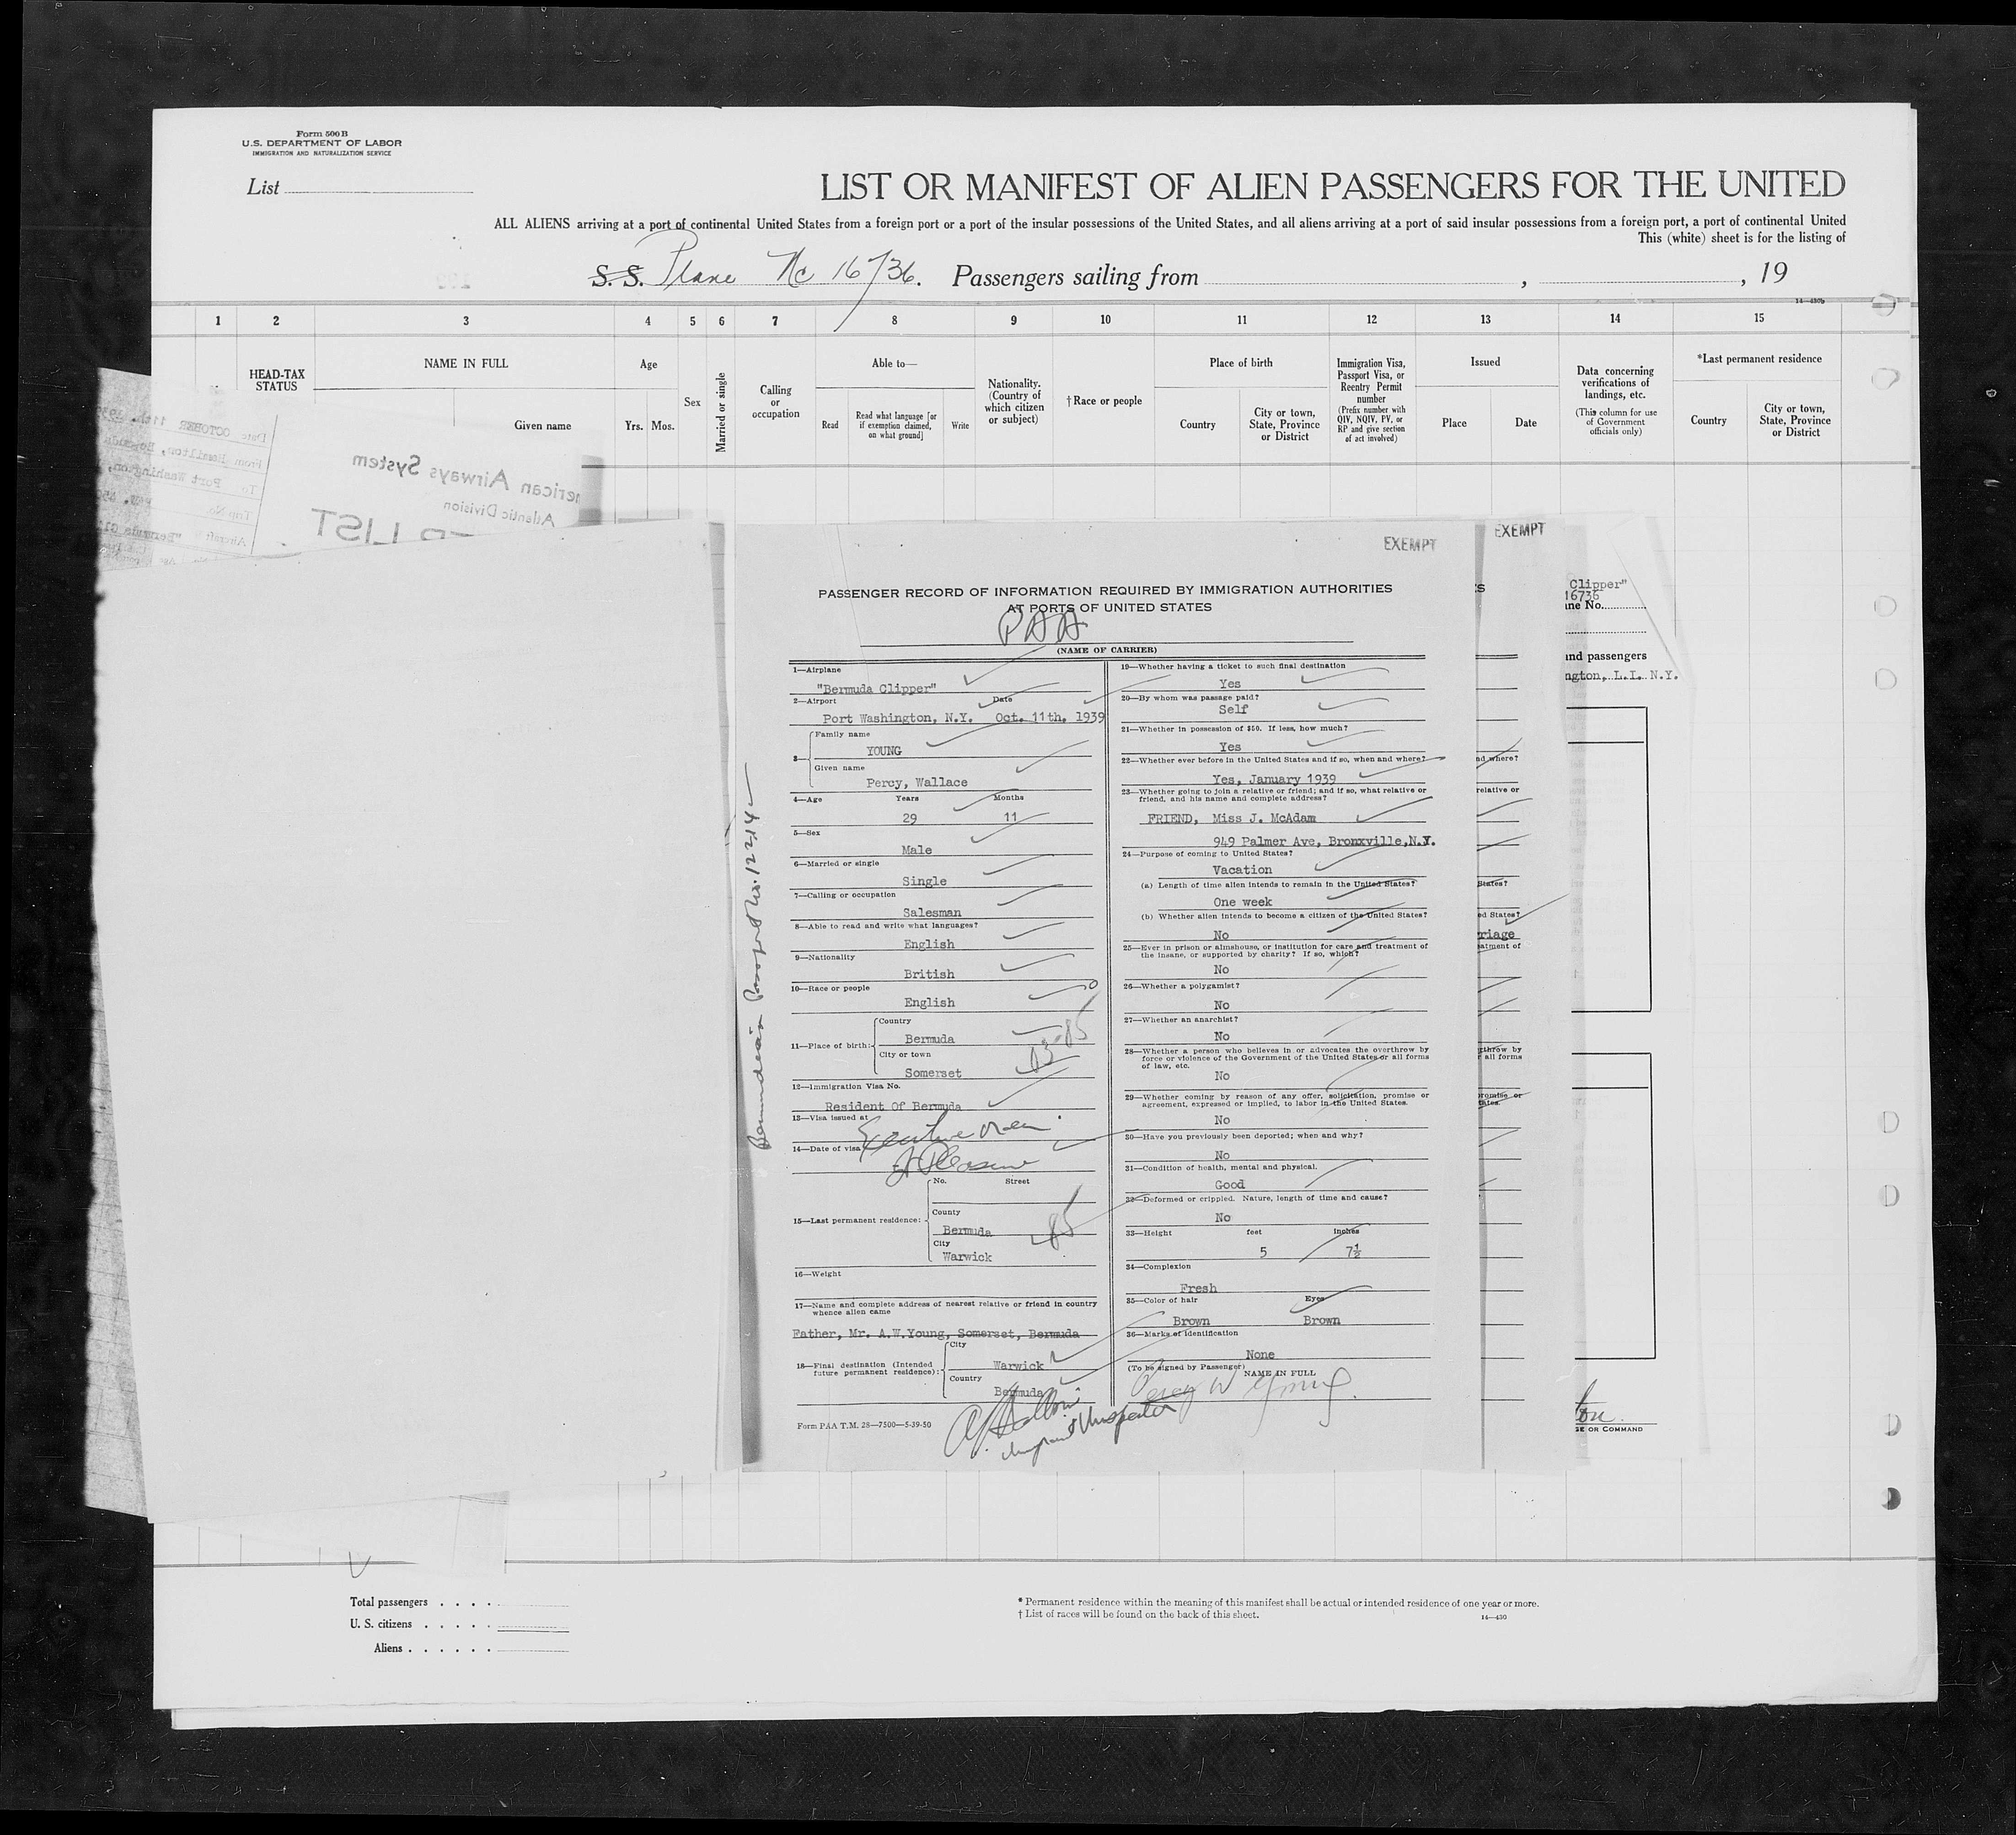 Form 500 B
U.S. DEPARTMENT OF LABOR
IMMIGRATION AND NATURALIZATION SERVICE
List
LIST OR MANIFEST OF ALIEN PASSENGERS FOR THE UNITED
ALL ALIENS arriving at a port of continental United States from a foreign port or a port of the insular possessions of the United States, and all aliens arriving at a port of said insular possessions from a foreign port, a port of continental United
This (white) sheet is for the listing of
S. S. Plane Nc 16736. Passengers sailing from , , 19
14—430b
1 2 3 4 5 6 7 8 9 10 11 12 13 14 15
HEAD-TAX STATUS
NAME IN FULL
Given name
Age
Yrs. Mos.
Sex
Married or single
Calling or occupation
Able to—
Read
Read what language [or if exemption claimed, on what ground]
Write
Nationality. (Country of which citizen or subject)
†Race or people
Place of birth
Country
City or town, State, Province or District
Immigration Visa, Passport Visa, or Reentry Permit number
(Prefix number with QIV, NQIV, PV, or RP and give section of act involved)
Issued
Place
Date
Data concerning verifications of landings, etc.
(This column for use of Government officials only)
*Last permanent residence
Country
City or town, State, Province or District
Date OCTOBER 11th,
From Hamilton,
To Port Washington,
Trip No.
Aircraft
Airways System
Atlantic Division
LIST
EXEMPT
EXEMPT
PASSENGER RECORD OF INFORMATION REQUIRED BY IMMIGRATION AUTHORITIES
AT PORTS OF UNITED STATES
PAA
(NAME OF CARRIER)
1—Airplane
"Bermuda Clipper"
2—Airport Date
Port Washington, N.Y. Oct. 11th, 1939
3— Family name
YOUNG
Given name
Percy, Wallace
4—Age Years Months
29 11
5—Sex
Male
6—Married or single
Single
7—Calling or occupation
Salesman
8—Able to read and write what languages?
English
9—Nationality
British
10—Race or people
English
11—Place of birth: Country
Bermuda
City or town
Somerset
12—Immigration Visa No.
Resident Of Bermuda
13—Visa issued at
14—Date of visa
15—Last permanent residence: No. Street
County
Bermuda
City
Warwick
85
16—Weight
17—Name and complete address of nearest relative or friend in country
whence alien came
Father, Mr. A.W.Young, Somerset, Bermuda
18—Final destination (Intended
future permanent residence): City
Warwick
Country
Bermuda
Form PAA T.M. 28—7500—5-39-50
19—Whether having a ticket to such final destination
Yes
20—By whom was passage paid?
Self
21—Whether in possession of $50. If less, how much?
Yes
22—Whether ever before in the United States and if so, when and where?
Yes, January 1939
23—Whether going to join a relative or friend; and if so, what relative or
friend, and his name and complete address?
FRIEND, Miss J. McAdam
949 Palmer Ave, Bronxville,N.Y.
24—Purpose of coming to United States?
Vacation
(a) Length of time alien intends to remain in the United States?
One week
(b) Whether alien intends to become a citizen of the United States?
No
25—Ever in prison or almshouse, or institution for care and treatment of
the insane, or supported by charity? If so, which?
No
26—Whether a polygamist?
No
27—Whether an anarchist?
No
28—Whether a person who believes in or advocates the overthrow by
force or violence of the Government of the United States or all forms
of law, etc.
No
29—Whether coming by reason of any offer, solicitation, promise or
agreement, expressed or implied, to labor in the United States.
No
30—Have you previously been deported; when and why?
No
31—Condition of health, mental and physical.
Good
32—Deformed or crippled. Nature, length of time and cause?
No
33—Height feet inches
5 7½
34—Complexion
Fresh
35—Color of hair Eyes
Brown Brown
36—Marks of identification
None
(To be signed by Passenger) NAME IN FULL
Percy W Young
Clipper"
16736
ne No.
and passengers
ngton, L.I. N.Y.
nd where?
relative or
States?
ed States?
riage
atment of
rthrow by
all forms
romise or
E OR COMMAND
Total passengers
U. S. citizens
Aliens
* Permanent residence within the meaning of this manifest shall be actual or intended residence of one year or more.
† List of races will be found on the back of this sheet.
14—430